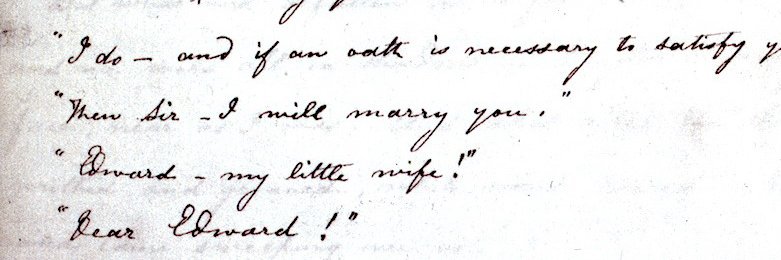 "I do – and if an oath is necessary to satisfy y
"Then Sir – I will marry you."
"Edward – my little wife!"
"Dear Edward!"